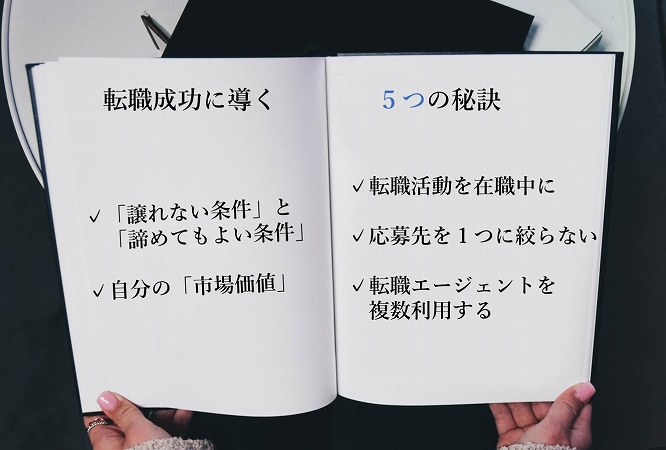 転職成功に導く
✓「譲れない条件」と
「諦めてもよい条件」
✓自分の「市場価値」
５つの秘訣
✓転職活動を在職中に
✓応募先を１つに絞らない
✓転職エージェントを
複数利用する